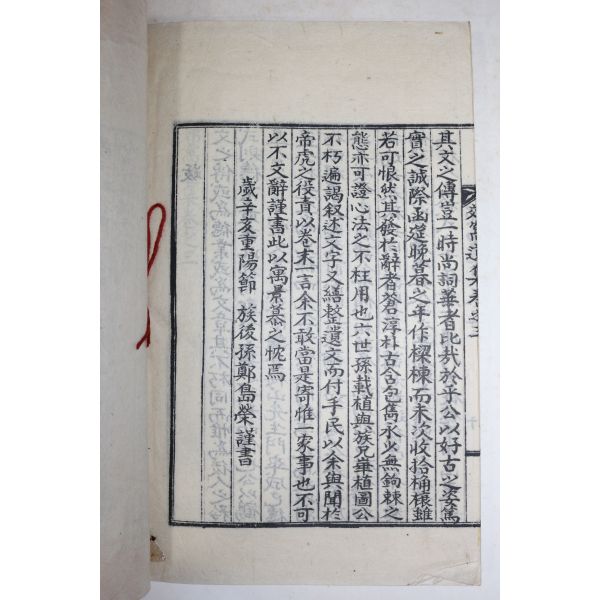 其文之傳豈一時尚詞華者比哉於乎公以好古之姿篤
實之誠際函筵晩暮之年作樑棟而未次收拾桷榱雖
若可恨然其發於辭者蒼淳朴古含包雋永以無鉤棘之
態亦可證心法之不枉用也六世孫載植與族兄畢植圖公
不朽遍謁叙述文字又繕整遺文而付手民以余與聞於
帝虎之役責以卷末一言余不敢當是寄惟一家事也不可
以不文辭謹書此以寓景慕之忱焉
歲辛亥重陽節 族後孫鄭島榮謹書